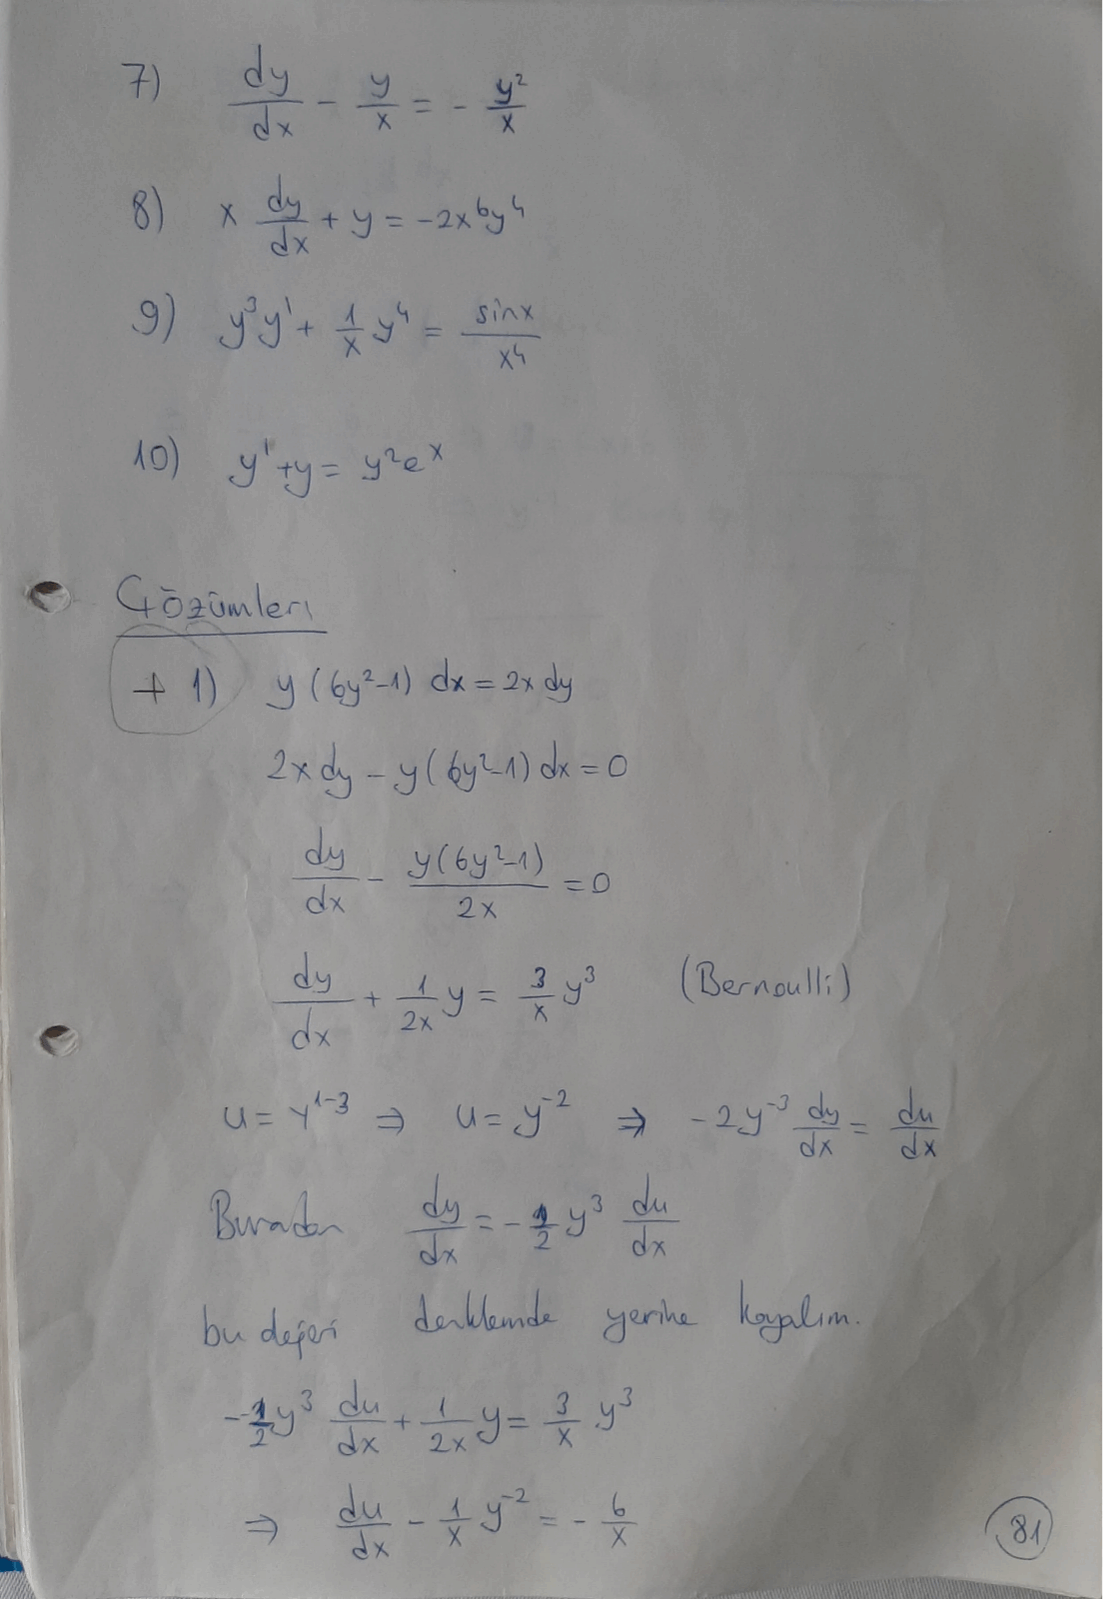 7) dy/dx - y/x = - y²/x
8) x dy/dx + y = -2x⁶y⁴
9) y³y' + 1/x y⁴ = sinx/x⁴
10) y' + y = y²eˣ
Çözümleri
+ 1) y(6y²-1) dx = 2x dy
2x dy - y(6y²-1) dx = 0
dy/dx - y(6y²-1)/2x = 0
dy/dx + 1/2x y = 3/x y³ (Bernoulli)
u = y¹⁻³ ⇒ u = y⁻² ⇒ -2y⁻³ dy/dx = du/dx
Buradan dy/dx = - 1/2 y³ du/dx
bu değeri denklemde yerine koyalım.
- 1/2 y³ du/dx + 1/2x y = 3/x y³
⇒ du/dx - 1/x y⁻² = - 6/x
81